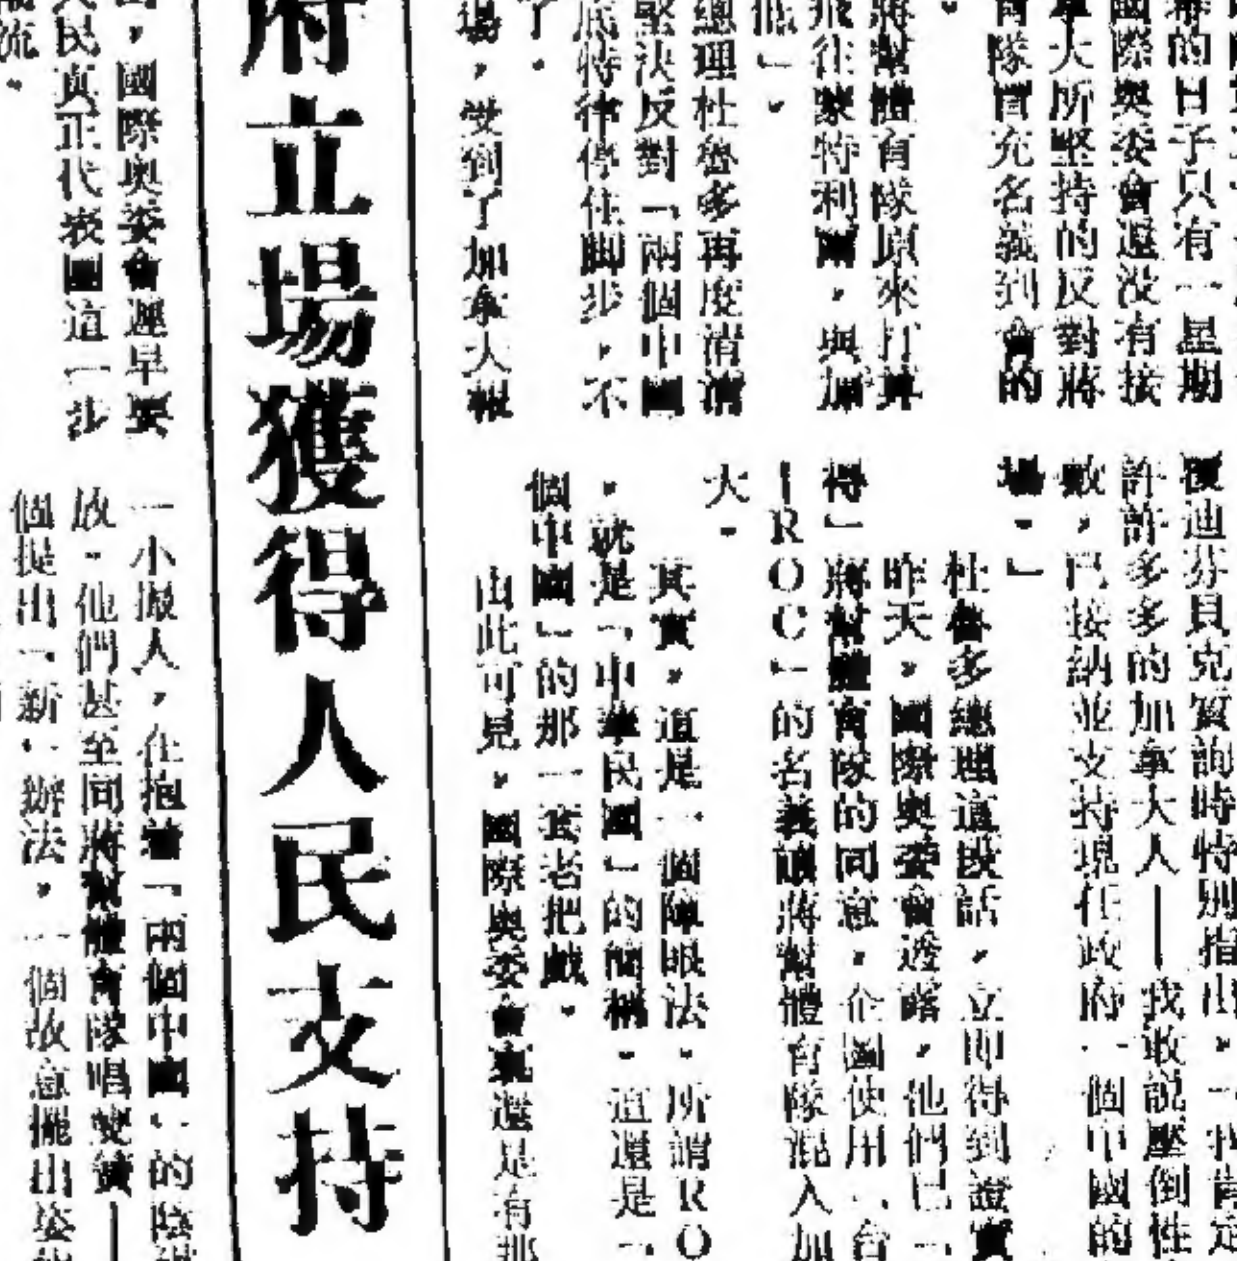 幕的日子只有一星期
國際奧委會還没有按
拿大所堅持的反對蔣
育隊冒充名義到會的
。
蔣幫體育隊原來打算
飛往蒙特利爾，與加
低」。
總理杜魯多再度清清
堅決反對「兩個中國
底特律停住脚步，不
了。
場，受到了加拿大報
覆迪芬貝克質詢時特別指出，「我肯定
許許多多的加拿大人——我敢説壓倒性
數，已接納並支持現任政府一個中國的
場。」
杜魯多總理這段話，立即得到證實
昨天，國際奧委會透露，他們已「
得」蔣幫體育隊的同意，企圖使用「台
—ROC」的名義讓蔣幫體育隊混入加
大。
其實，這是一個障眼法。所謂RO
，就是「中華民國」的簡稱。這還是「
個中國」的那一套老把戲。
由此可見，國際奧委會裏還是有那
府立場獲得人民支持
，國際奧委會遲早要
民真正代表團這一步
流。
一小撮人，在抱着「兩個中國」的陰謀
放。他們甚至同蔣幫體育隊唱雙簧——
個提出「新」辦法，一個故意擺出姿